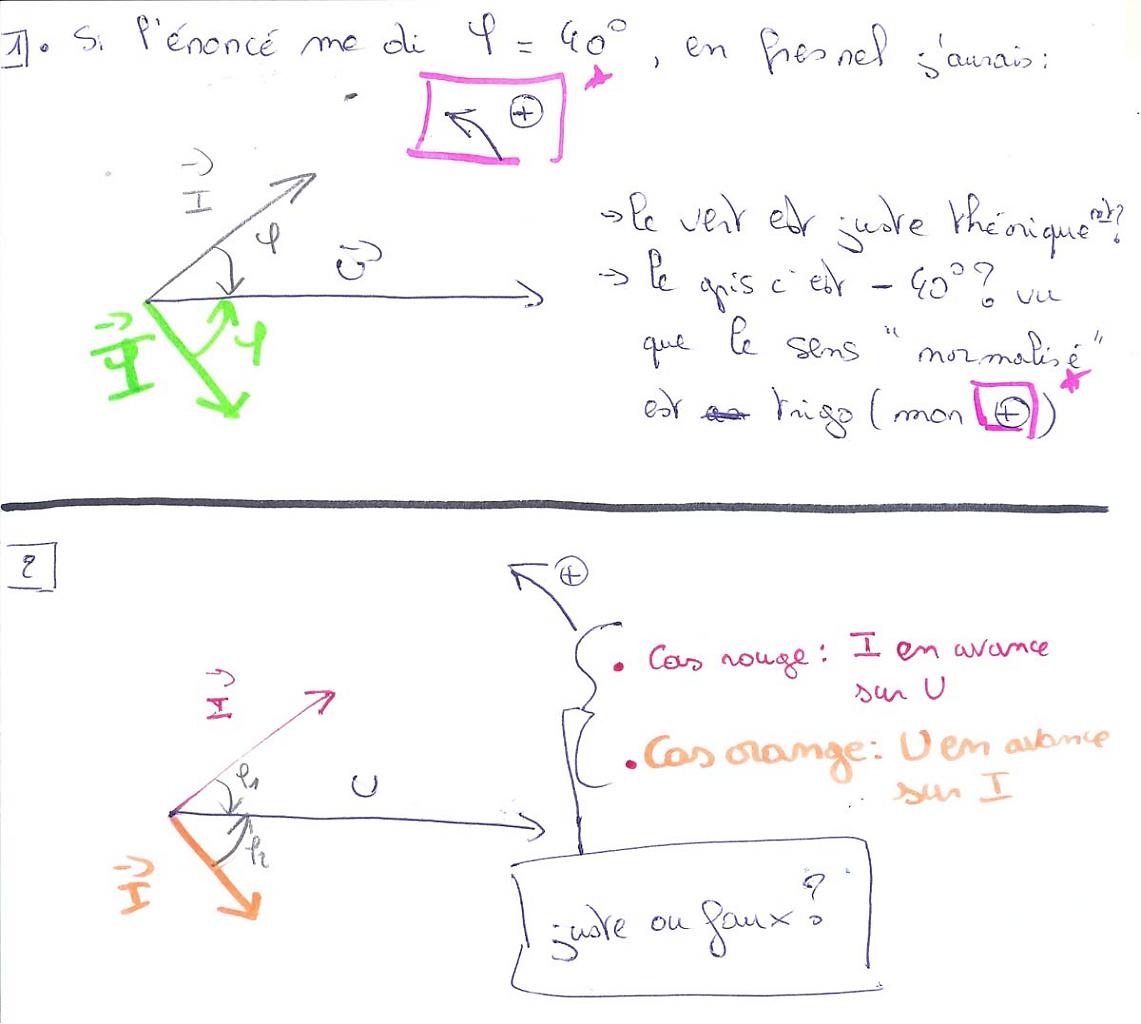 1. Si l'énoncé me di φ = 40°, en fresnel j'aurais:
+
I
φ
U
→ le vert est juste théoriquement?
→ le gris c'est - 40°? vu
I φ
que le sens "normalisé"
est trigo (mon +)
2
+
• Cas rouge: I en avance
sur U
I
• Cas orange: U en avance
sur I
φ1
U
φ2
I
juste ou faux?